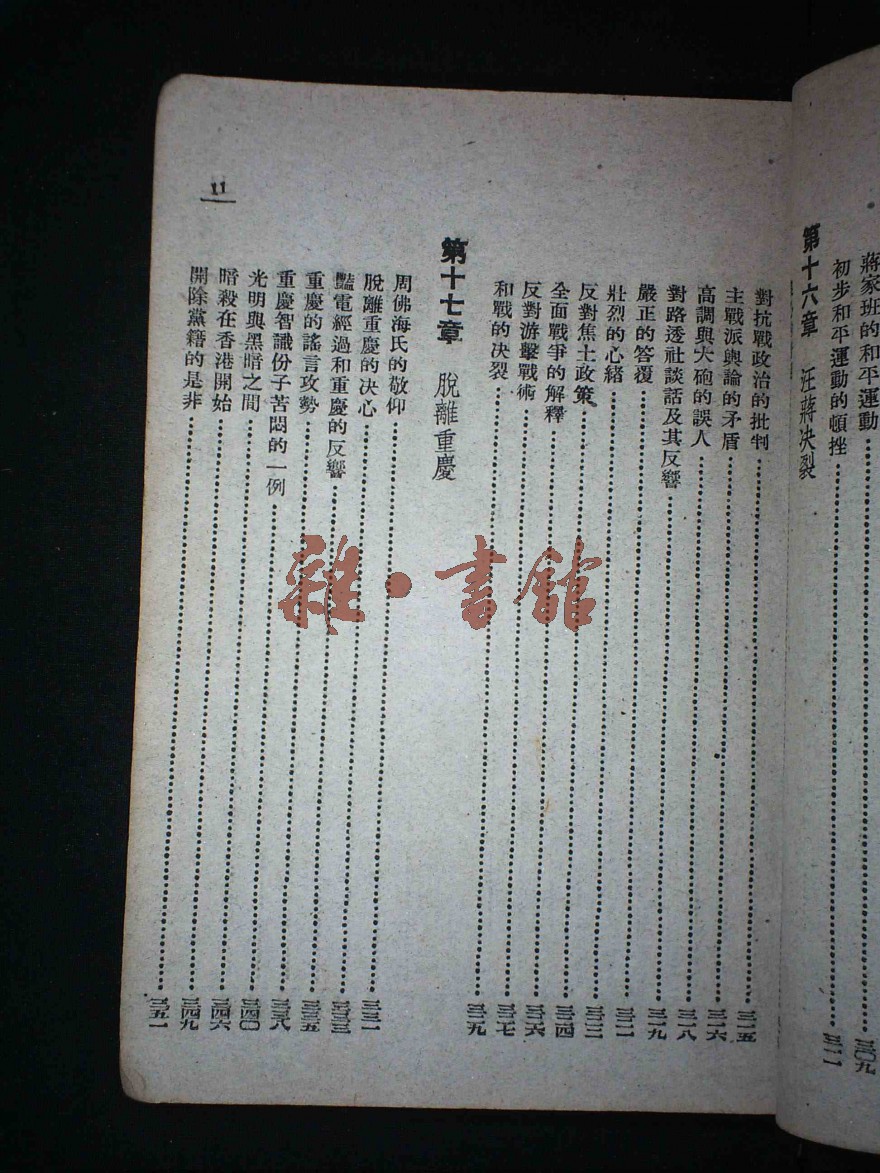 蔣家班的和平運動……三〇九
初步和平運動的頓挫……三一一
第十六章 汪蔣决裂
對抗戰政治的批判……三一五
主戰派輿論的矛盾……三一六
高調與大砲的誤人……三一八
對路透社談話及其反響……三一九
嚴正的答覆……三二一
壯烈的心緒……三二三
反對焦土政策……三二四
全面戰爭的解釋……三二六
反對游擊戰術……三二七
和戰的决裂……三二九
第十七章 脫離重慶
周佛海氏的敬仰……三三一
脫離重慶的决心……三三三
豔電經過和重慶的反響……三三五
重慶的謠言攻勢……三三八
重慶智識份子苦悶的一例……三四〇
光明與黑暗之間……三四六
暗殺在香港開始……三四九
開除黨籍的是非……三五一
11
雜·書館